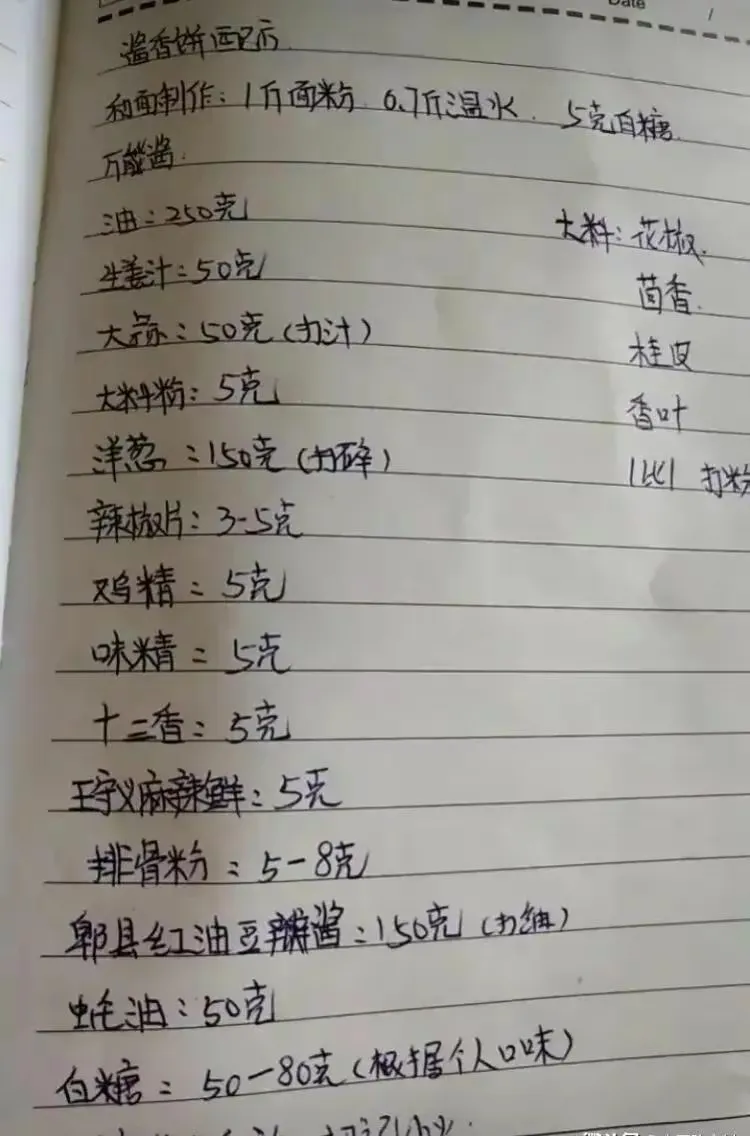 Date /
酱香饼配方
和面制作：1斤面粉 0.7斤温水 5克白糖
万能酱
油：250克
生姜汁：50克
大蒜：50克（打汁）
大料粉：5克
洋葱：150克（打碎）
辣椒片：3-5克
鸡精：5克
味精：5克
十三香：5克
王守义麻辣鲜：5克
排骨粉：5-8克
郫县红油豆瓣酱：150克（打细）
蚝油：50克
白糖：50-80克（根据个人口味）
大料：花椒
茴香
桂皮
香叶
1比1 打粉